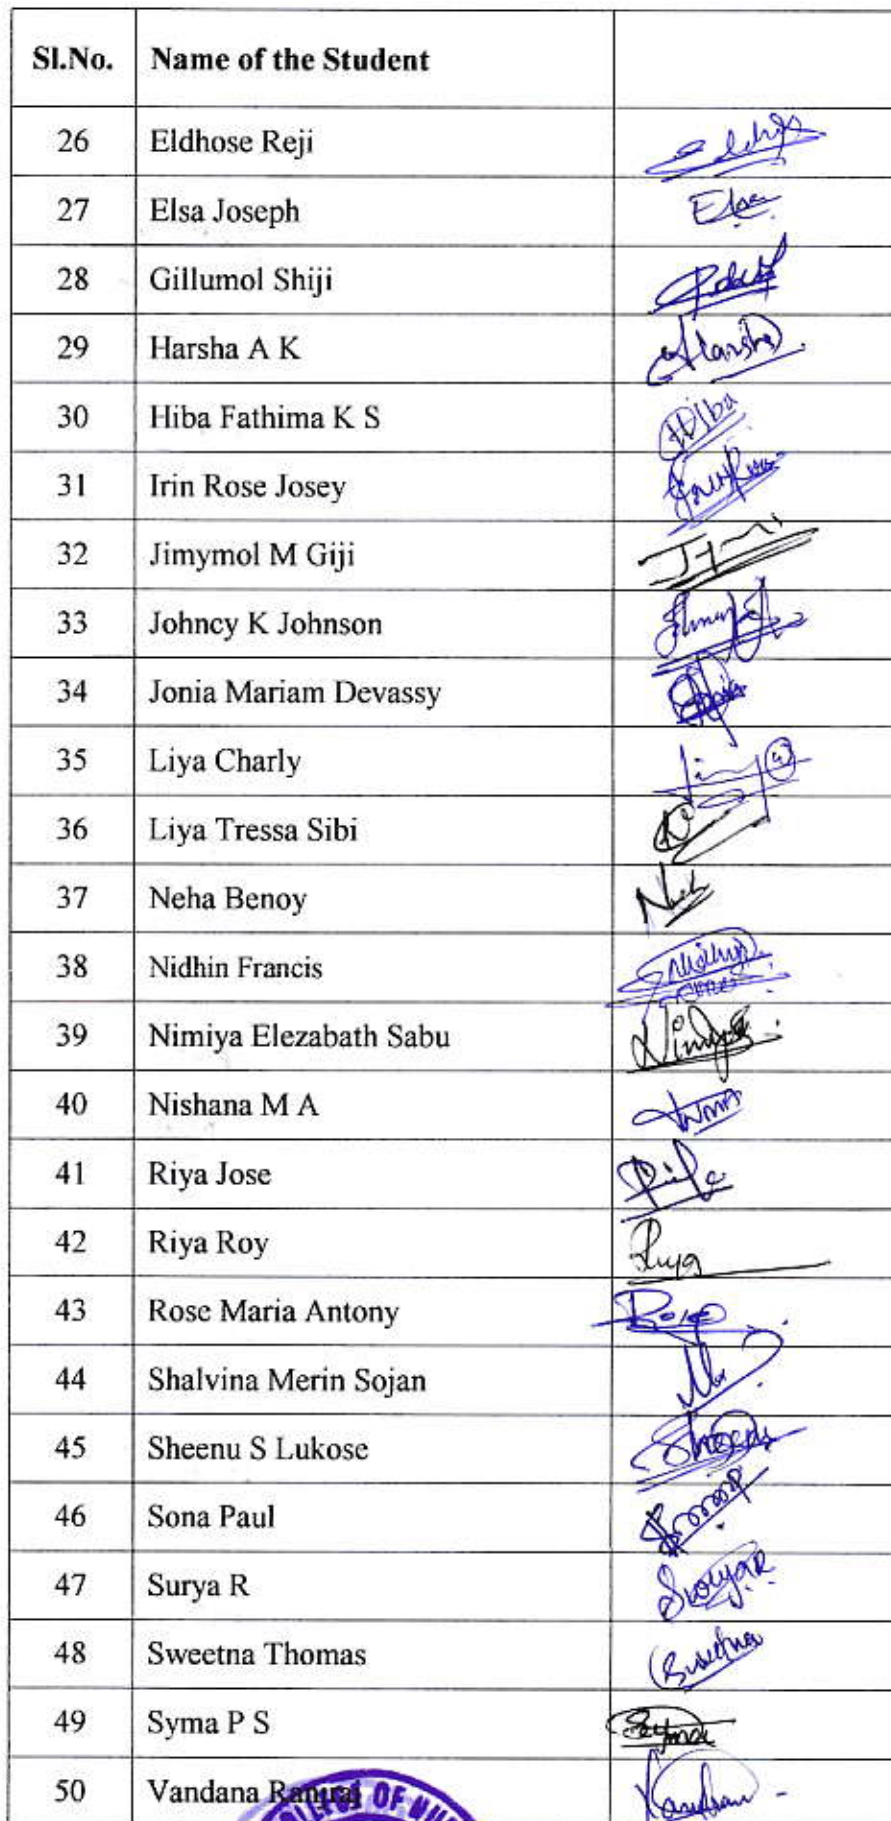 Sl.No. Name of the Student
26 Eldhose Reji
27 Elsa Joseph Elsa
28 Gillumol Shiji
29 Harsha A K Harsha
30 Hiba Fathima K S Hiba
31 Irin Rose Josey
32 Jimymol M Giji
33 Johncy K Johnson
34 Jonia Mariam Devassy
35 Liya Charly
36 Liya Tressa Sibi
37 Neha Benoy
38 Nidhin Francis
39 Nimiya Elezabath Sabu
40 Nishana M A
41 Riya Jose
42 Riya Roy Riya
43 Rose Maria Antony Rose
44 Shalvina Merin Sojan
45 Sheenu S Lukose Sheenu
46 Sona Paul
47 Surya R Surya R
48 Sweetna Thomas Sweetna
49 Syma P S Syma
50 Vandana
COLLEGE OF